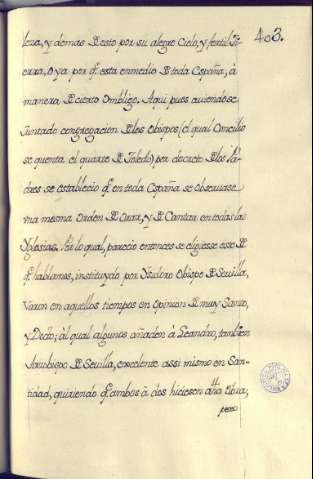 403.
leza, y demas desto por su alegre Cielo, y fertil Ti-
erra, o ya por q̃ esta enmedio de toda España, à
manera de cierto Ombligo. Aqui pues auiendose
Juntado congregacion de los Obispos (el qual Concilio
se quenta el quarto de Toledo) por decreto de los Pa-
dres se establecio q̃ en toda España se obseruase
vna mesma Orden de Orar, y de Cantar en todas las
Yglesias. Por lo qual, parecio entonces se eligiesse esse de
q̃ hablamos, instituydo por Ysidoro Obispo de Seuilla,
Varon en aquellos tiempos en Opinion de muy Santo,
y Docto; al qual algunos añaden à Leandro, tambien
Arzobispo de Seuilla, excelente assi mismo en San-
tidad, quiriendo q̃ ambos à dos hiciesen dha Obra,
pero